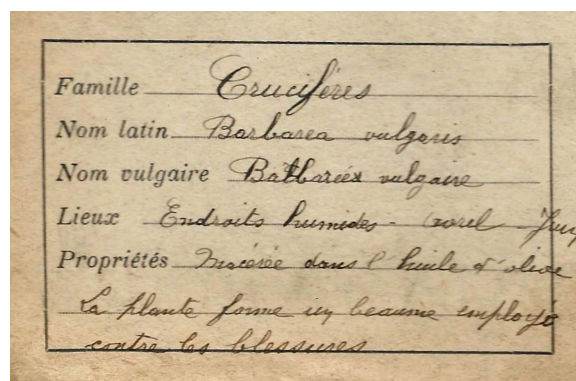 Famille Crucifères
Nom latin Barbarea vulgaris
Nom vulgaire Barbarée vulgaire
Lieux Endroits humides - avril - Juin
Propriétés Macérée dans l'huile d'olive
La plante forme un beaume employé
contre les blessures